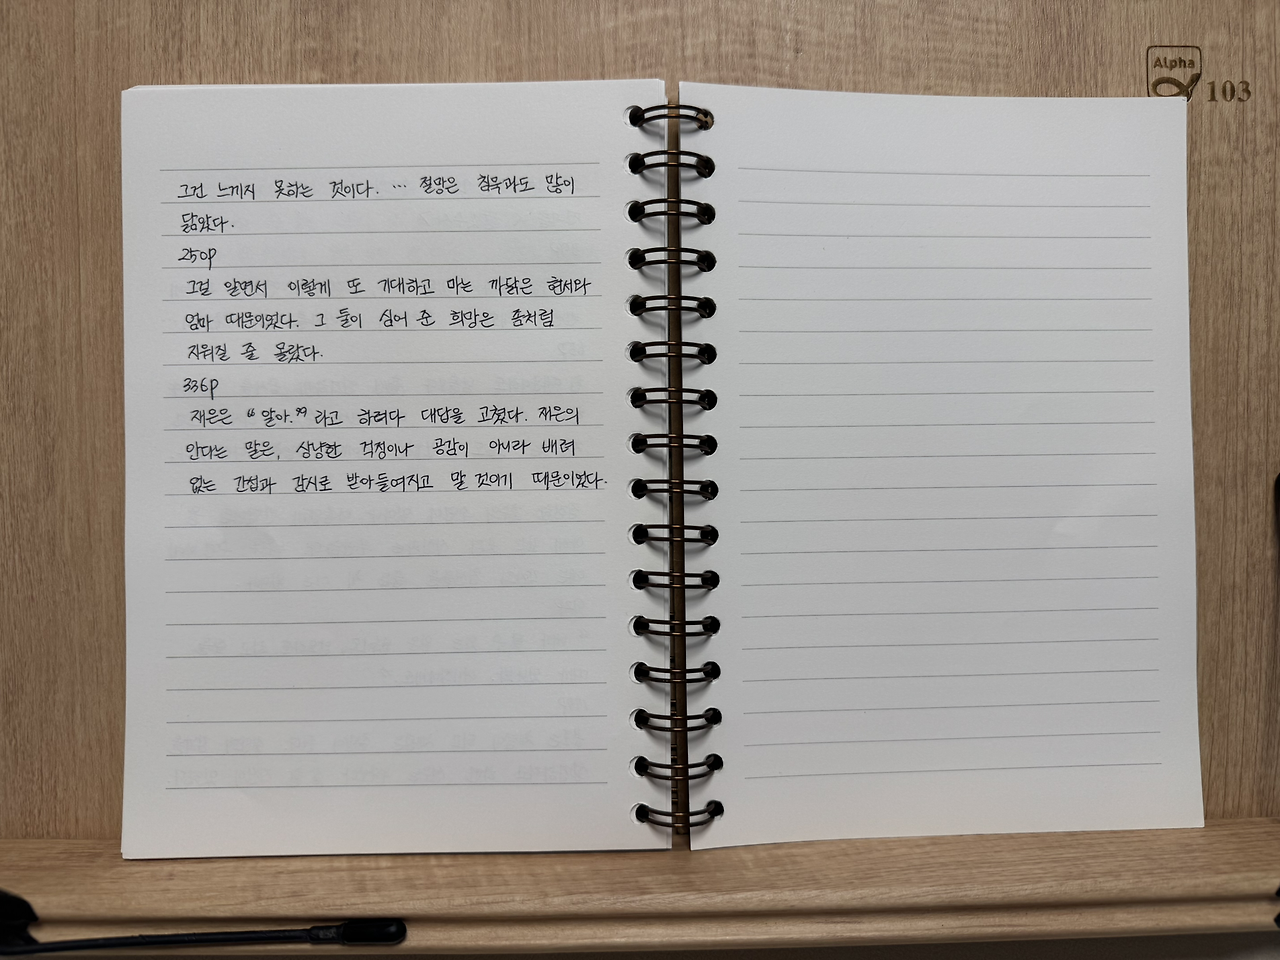 Alpha
103
그건 느끼지 못하는 것이다. … 절망은 침묵과도 많이
닮았다.
250p
그걸 알면서 이렇게 또 기대하고 마는 까닭은 현서와
엄마 때문이었다. 그 둘이 심어 준 희망은 좀처럼
지워질 줄 몰랐다.
336p
재은은 “알아.”라고 하려다 대답을 고쳤다. 재은의
안다는 말은, 상냥한 걱정이나 공감이 아니라 배려
없는 간섭과 감시로 받아들여지고 말 것이기 때문이었다.